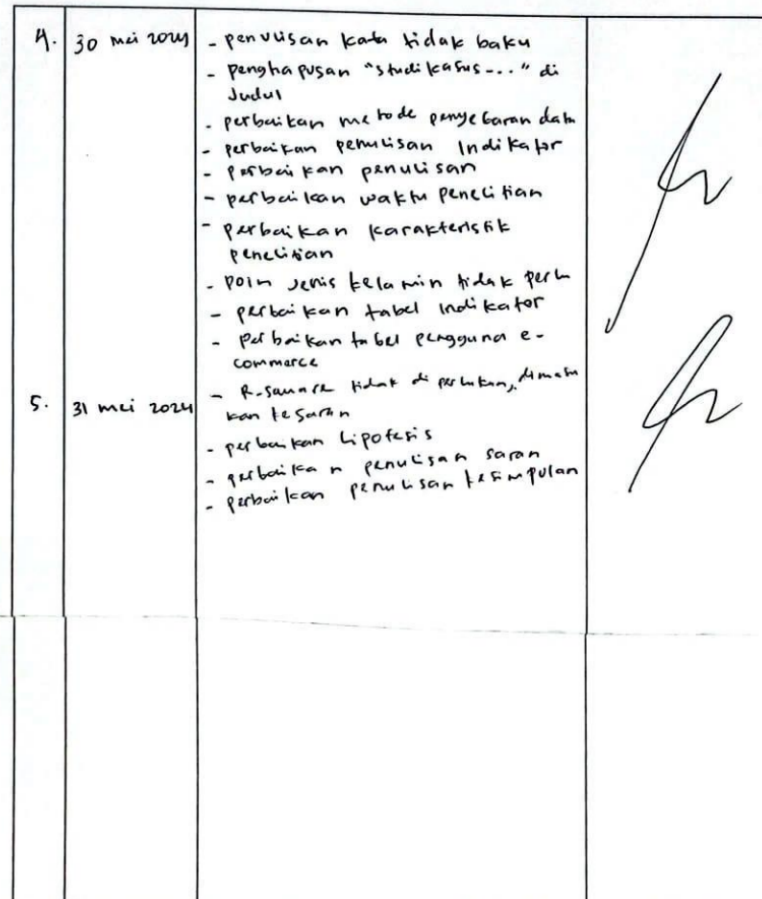 4. 30 mei 2024 - penulisan kata tidak baku
- penghapusan "studi kasus-..." di
Judul
- perbaikan metode penyebaran data
- perbaikan penulisan Indikator
- perbaikan penulisan
- perbaikan waktu penelitian
- perbaikan karakteristik
penelitian
- poin jenis kelamin tidak perlu
- perbaikan tabel Indikator
- perbaikan tabel pengguna e-
commerce
5. 31 mei 2024 - R-square tidak di perlukan, dimasu
kan ke saran
- perbaikan hipotesis
- perbaikan penulisan saran
- perbaikan penulisan kesimpulan